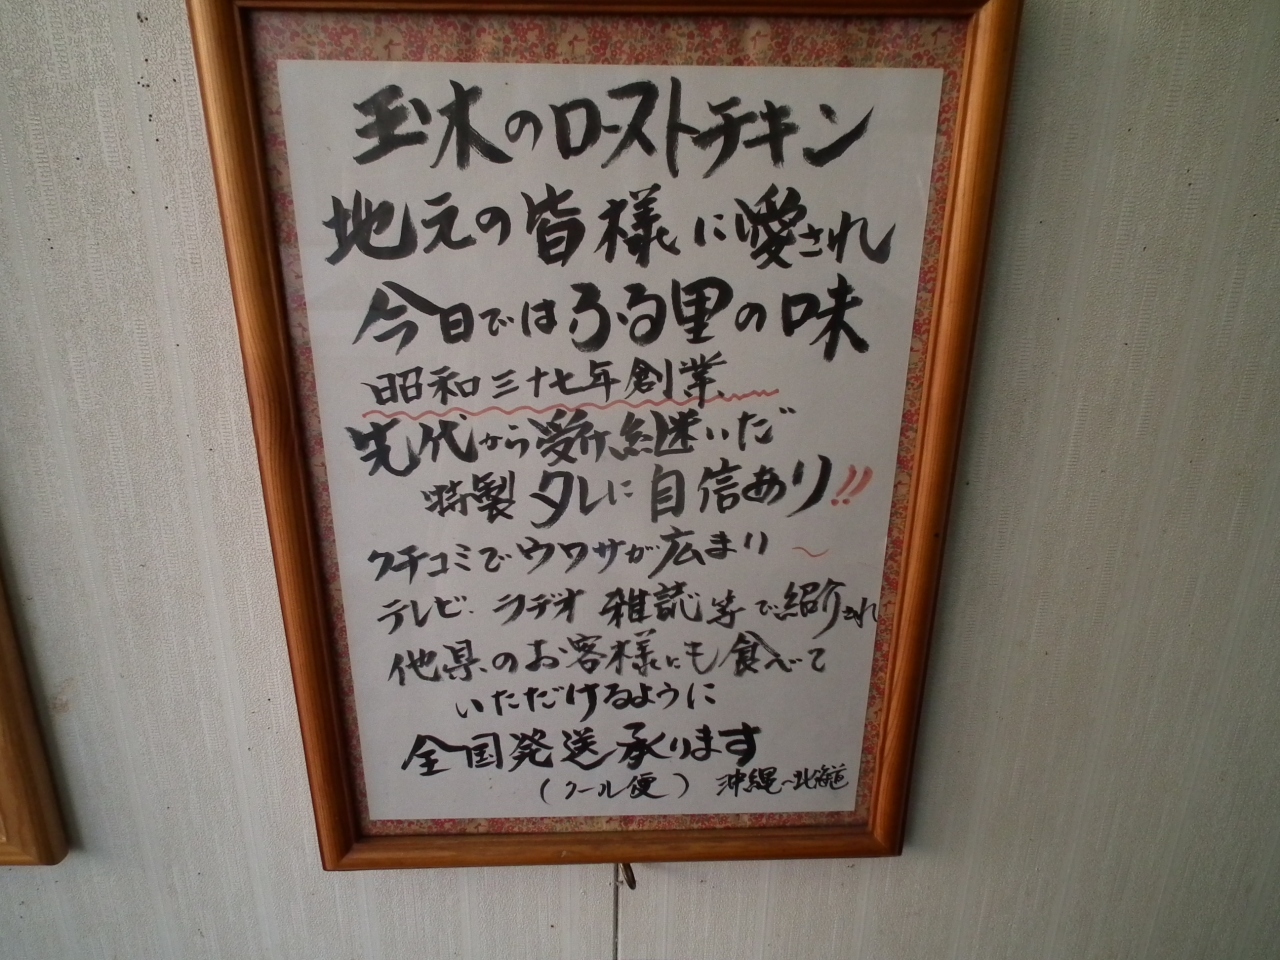 玉木のローストチキン
地元の皆様に愛され
今日ではふる里の味
昭和三十七年創業
先代から受け継いだ
特製タレに自信あり!!
クチコミでウワサが広まり〜
テレビ・ラヂオ雑誌等で紹介され
他県のお客様にも食べて
いただけるように
全国発送承ります
(クール便) 沖縄〜北海道